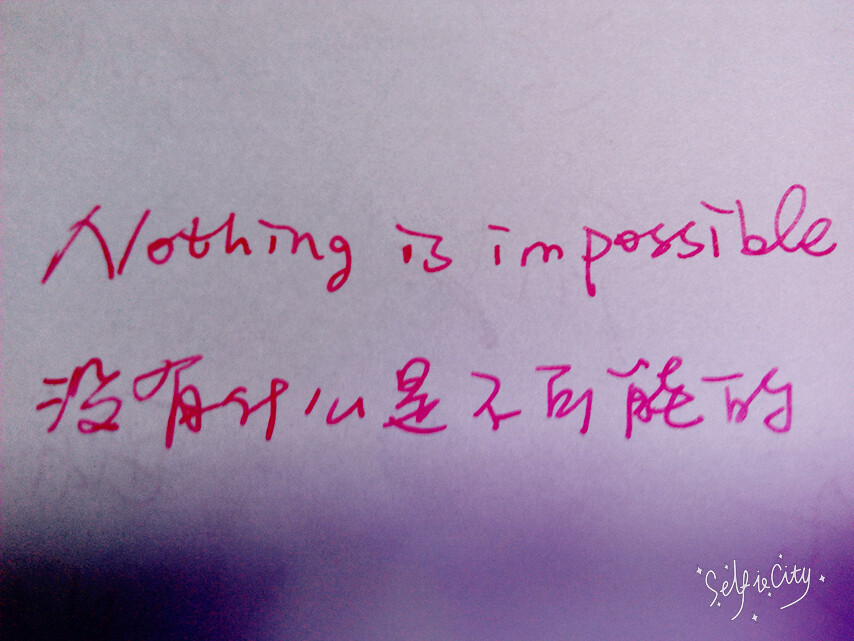 Nothing is impossible
没有什么是不可能的
SelfieCity